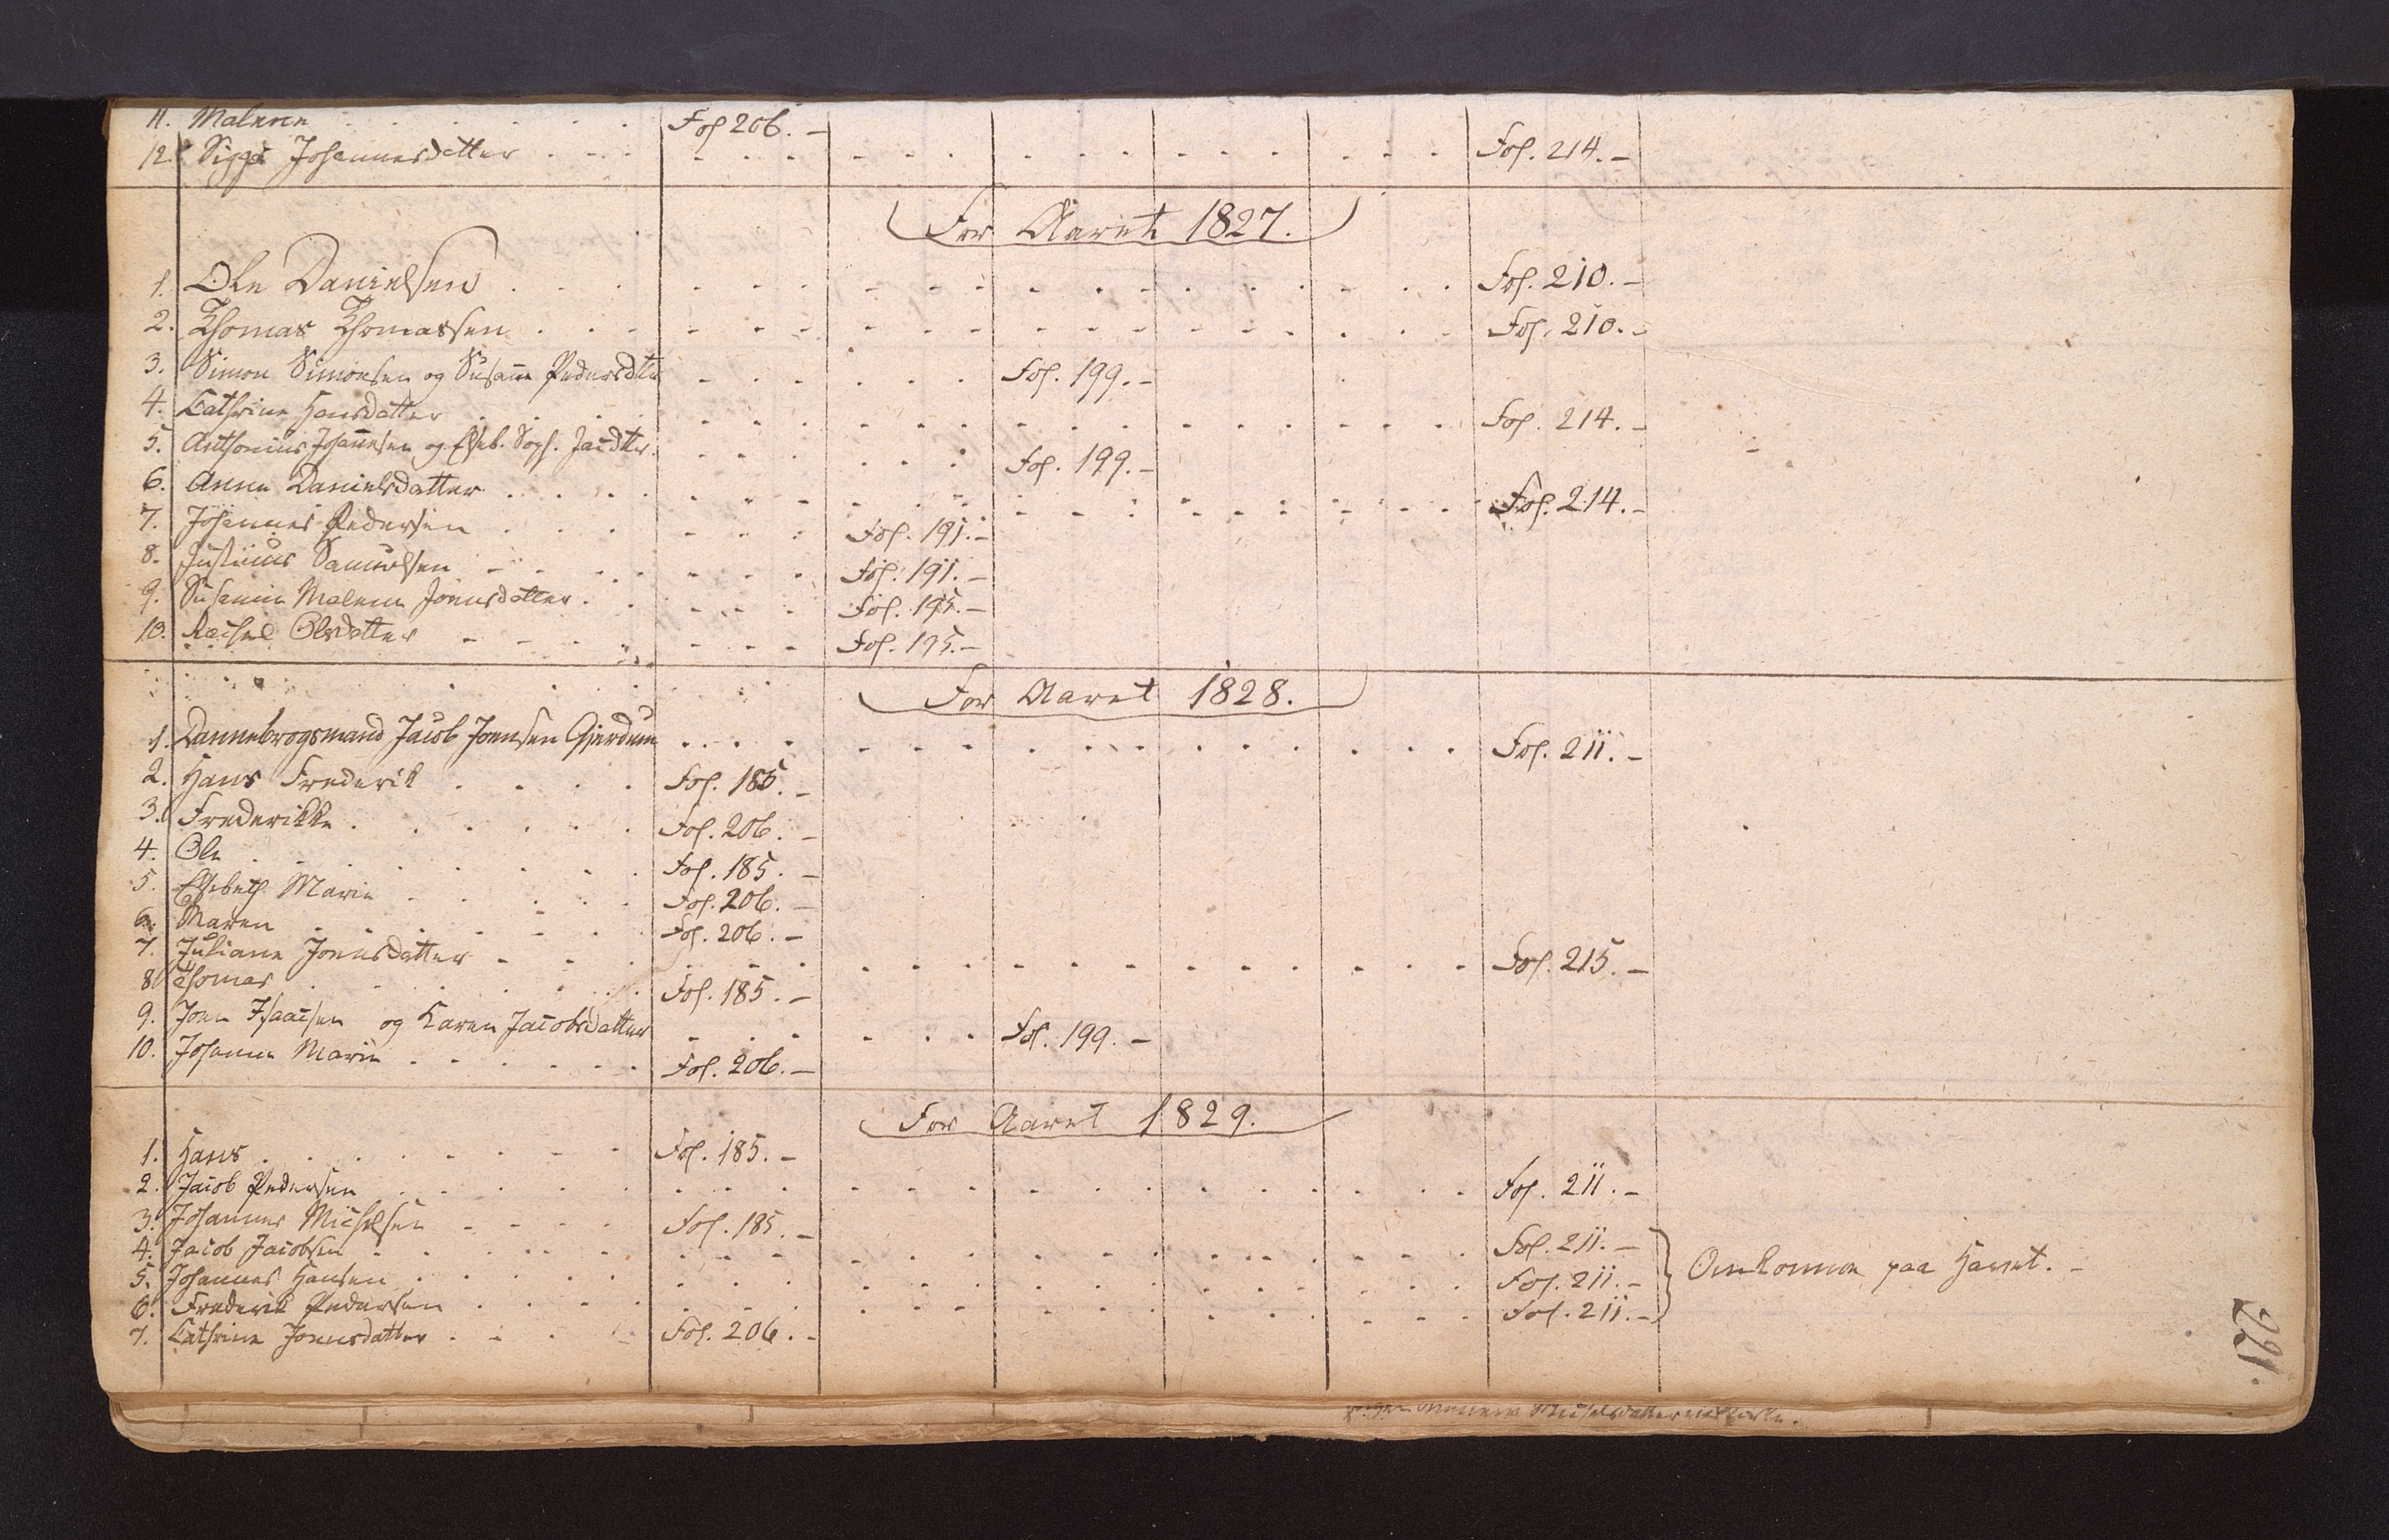 11. Malene Fol 206. -
12. Sigga Johannesdatter Fol. 214. -
For Aaret 1827.
1. Ole Danielsen Fol. 210. -
2. Thomas Thomassen Fol. 210. -
3. Simon Simonsen og Susanne Pedersdtter Fol. 199. -
4. Cathrine Hansdatter Fol. 214. -
5. Anthonius Johannesen og Elseb. Soph. Jacdtter. Fol. 199. -
6. Anne Danielsdatter Fol. 214. -
7. Johannes Pedersen Fol. 191. -
8. Justinus Samuelsen Fol. 191. -
9. Susanne Malene Joensdatter. Fol. 195. -
10. Rachel Olesdatter Fol. 195. -
For Aaret 1828.
1. Dannebrogsmand Jacob Joensen Gjerdum Fol. 211. -
2. Hans Frederik Fol. 185. -
3. Frederikke. Fol. 206. -
4. Ole Fol. 185. -
5. Elsebeth Marie Fol. 206. -
6. Maren Fol. 206. -
7. Juliane Joensdatter Fol. 215. -
8. Thomas Fol. 185. -
9. Joen Isaacsen og Karen Jacobsdatter Fol. 199. -
10. Johanne Marie Fol. 206. -
For Aaret 1829.
1. Hans Fol. 185. -
2. Jacob Pedersen Fol. 211. -
3. Johannes Michelsen Fol. 185. -
4. Jacob Jacobsen Fol. 211. -
5. Johannes Hansen Fol. 211. - Omkomne paa Havet. -
6. Frederik Pedersen Fol. 211. -
7. Cathrine Joensdatter Fol. 206. -
221.